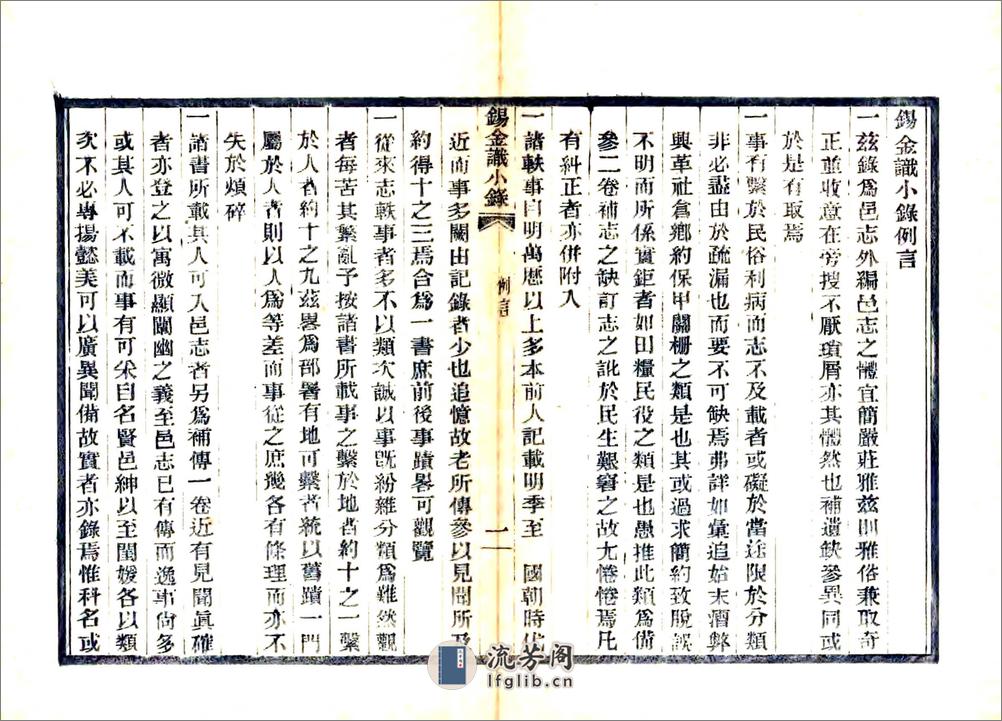 錫金識小錄例言
一兹錄爲邑志外編邑志之體宜簡嚴莊雅兹則雅俗兼取奇
正並收意在旁搜不厭瑣屑亦其體然也補遺缺參異同或
於是有取焉
一事有繫於民俗利病而志不及載者或礙於當途限於分類
非必盡由於疏漏也而要不可缺焉弗詳如彙追始末漕弊
興革社倉鄉約保甲關柵之類是也其或過求簡約致脫誤
不明而所係實鉅者如田糧民役之類是也愚推此類爲備
參二卷補志之缺訂志之訛於民生艱窘之故尤惓惓焉凡
有糾正者亦併附入
一諸軼事自明萬曆以上多本前人記載明季至 國朝時代
近而事多闕由記錄者少也追憶故老所傳參以見聞所及
約得十之三焉合爲一書庶前後事蹟畧可觀覽
一從來志軼事者多不以類次誠以事旣紛雜分類爲難然觀
者每苦其繁亂予按諸書所載事之繫於地者約十之一繫
於人者約十之九兹畧爲部署有地可繫者統以舊蹟一門
屬於人者則以人爲等差而事從之庶幾各有條理而亦不
失於煩碎
一諸書所載其人可入邑志者另爲補傳一卷近有見聞眞確
者亦登之以寓微顯闡幽之義至邑志已有傳而逸事尙多
或其人可不載而事有可采自名賢邑紳以至閨媛各以類
次不必專揚懿美可以廣異聞備故實者亦錄焉惟科名或
錫金識小錄
例言
一
流芳阁
lfglib.cn